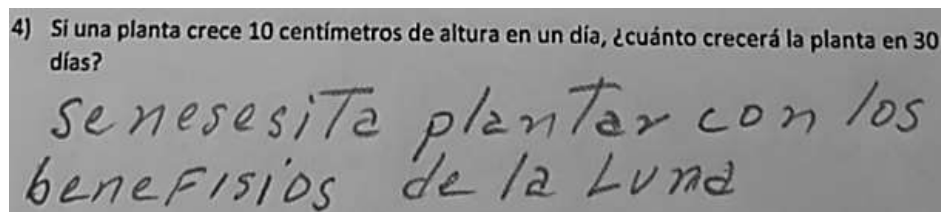 4) Si una planta crece 10 centímetros de altura en un día, ¿cuánto crecerá la planta en 30
días?
se nesesita plantar con los
benefisios de la Luna